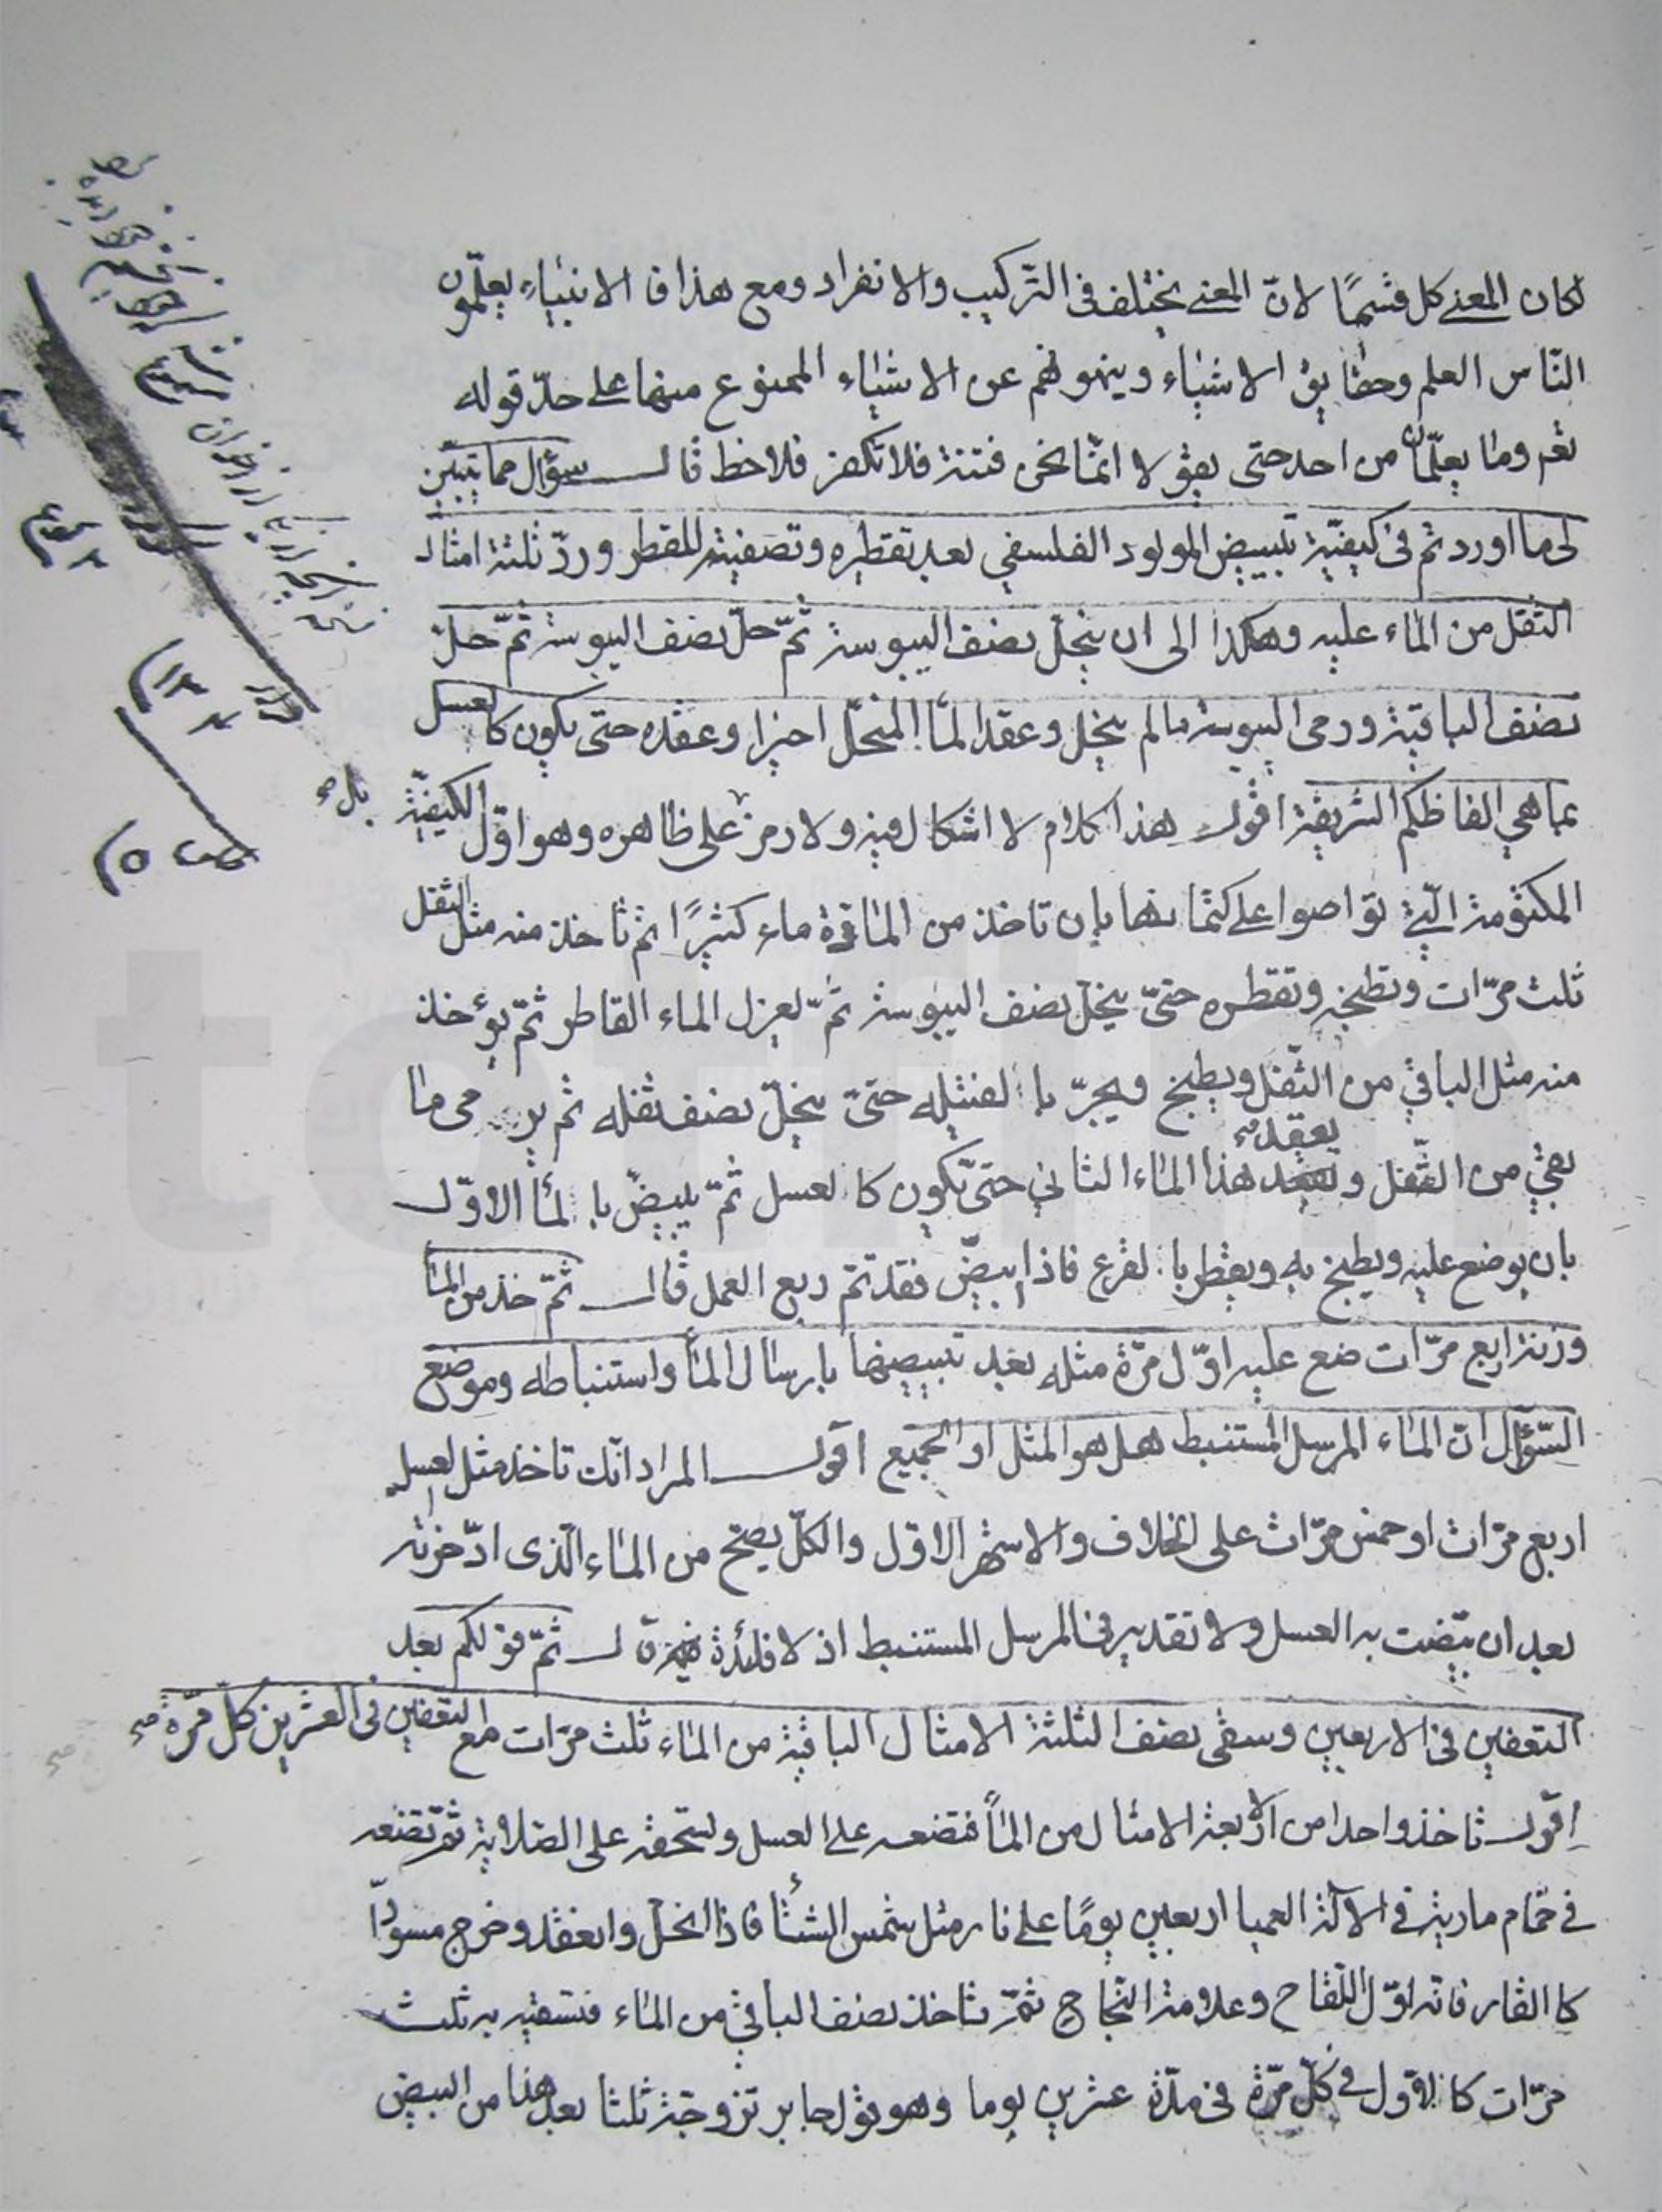 لكان المعنى كل قسمًا لانّ المعنى يختلف فى التّركيب والانفراد ومع هذا فالانبياء يعلّمون
النّاس العلم وحقايق الاشياء وينهونهم عن الاشياء الممنوع منها على حدّ قوله
تعم وما يعلّمان من احد حتى يقولا انّما نحن فتنة فلا تكفر فلاحظ قال سؤال مما تبيّن
لى ما اوردتم فى كيفيّة تبييض المولود الفلسفي بعد تقطيره وتصفيته للقطر وردّ ثلثة امثال
الثقل من الماء عليه وهكذا الى ان ينحلّ نصف اليبوسة ثمّ حلّ نصف اليبوسة ثمّ حلّ
نصف الباقية ورمى اليبوسة ما لم ينحل وعقد المآ المنحلّ اخيرا وعقده حتى يكون كالعسل
بما هي الفاظكم الشريفة اقول هذا كلام لا اشكال فيه ولا رمز على ظاهره وهو اوّل الكيفيّة
بل صح
المكتومة الّتي تواصوا على كتمانها بان تاخذ من المادّة ماء كثيرًا ثم تاخذ منه مثل الثقل
ثلث مرّات وتطبخه وتقطره حتىّ ينحلّ نصف اليبوسة ثمّ يعزل الماء القاطر ثمّ يؤخذ
منه مثل الباقي من الثّفل ويطبخ ويجرّ بالفتيله حتىّ ينحلّ نصف ثفله ثم يرمى ما
يعقد صح
بقي من الثّفل و هذا الماء الثاني حتىّ تكون كالعسل ثمّ يبيضّ بالمآ الاوّل
بان يوضع عليه ويطبخ به ويقطر بالقرع فاذا ابيضّ فقد تمّ ربع العمل قال ثمّ خذ من المآ
وزنه اربع مرّات ضع عليه اوّل مرّة مثله بعد تبييضها بارسال المآ واستنباطه وموضع
السّؤال انّ الماء المرسل المستنبط هل هو المثل او الجميع اقول المراد انّك تاخذ مثل العسل
اربع مرّات او خمس مرّات على الخلاف والاشهر الاوّل والكلّ يصحّ من الماء الّذى ادّخرته
بعد ان بيّضت به العسل ولا تقدير فى المرسل المستنبط اذ لا فائدة فيه قال ثمّ قولكم بعد
التعفين فى الاربعين وسقى نصف الثلثة الامثال الباقية من الماء ثلث مرّات مع التعفين فى العشرين كلّ مرّة صح
اقول تاخذ واحدا من الاربعة الامثال من المآ فتضعه على العسل وتسحقه على الصّلاية ثمّ تضعه
في حمّام مارية في الآلة العميا اربعين يومًا على نار مثل شمس الشتآ فاذا انحلّ وانعقد وخرج مسودّا
كالقار فانه اوّل اللّقاح وعلامة النّجاح ثمّ تاخذ نصف الباقي من الماء فتسقيه به ثلث
مرّات كالاوّل في كلّ مرّة فى مدّة عشرين يوما وهو قول جابر تزوجّه ثلثا بعد هذا من البيض